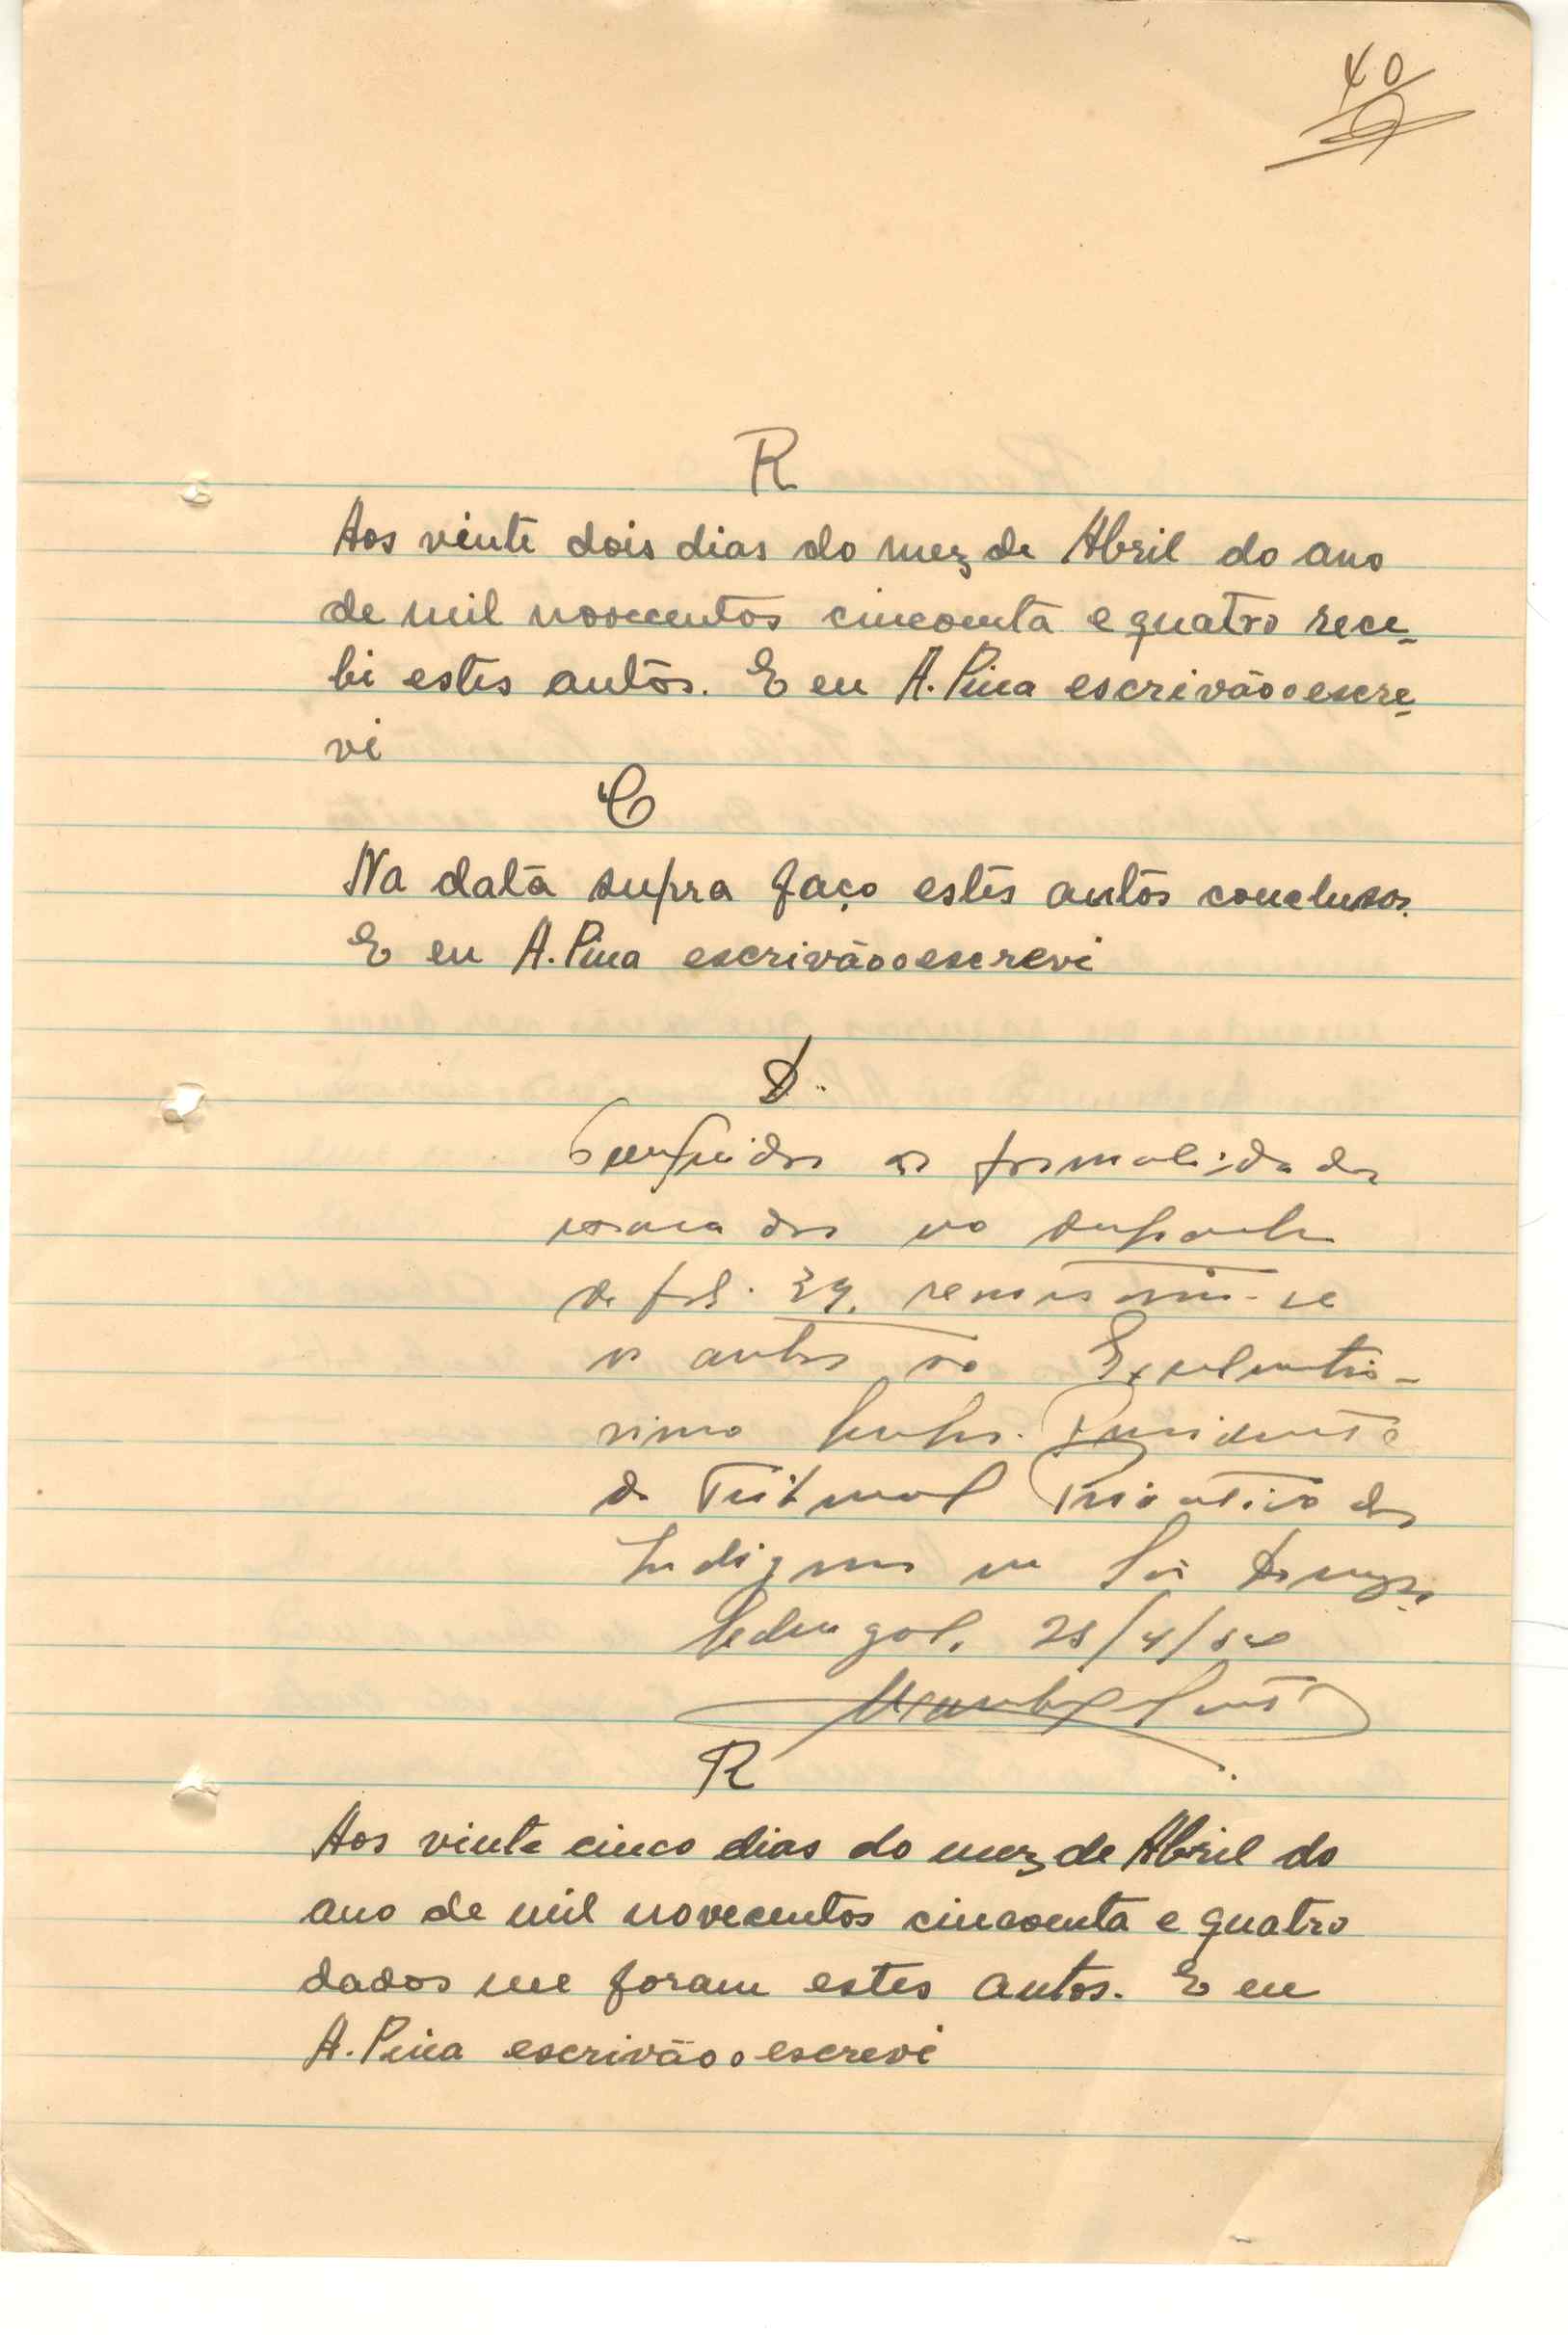 40
R
Aos vinte dois dias do mez de Abril do ano
de mil novecentos cincoenta e quatro rece-
bi estes autos. E eu A. Pina escrivão o escre-
vi
C
Na data supra faço estes autos conclusos.
E eu A. Pina escrivão o escrevi
D.
Cumpridas as formalidades
no despacho
de fls. 39, remetam-se
os autos ao Excelentis-
simo Senhor Presidente
do Tribunal Privativo dos
Indigenas em
25/4/54
R
Aos vinte cinco dias do mez de Abril do
ano de mil novecentos cincoenta e quatro
dados me foram estes autos. E eu
A. Pina escrivão o escrevi